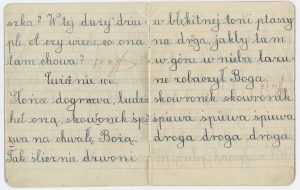 szka? W tej
pli. A czy wiesz, co ona
tam chowa?
Ćwiczenie 106.
Słońce dogrzewa, ludzie
het orzą, skowronek śpie
wa na chwałę Bożą.
Tak ślicznie dzwoni
w błękitnej toni
na drga, jakby tam
w górze w nieba lazu-
rze zobaczył Boga.
skowronek skowronik
śpiewa śpiewa śpiewa
droga droga droga